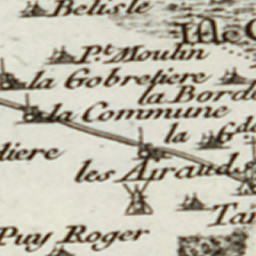 Belisle
P.t Moulin
la Gobretiere
la Borde
la Commune
la G.de
les Airauds
Puy Roger